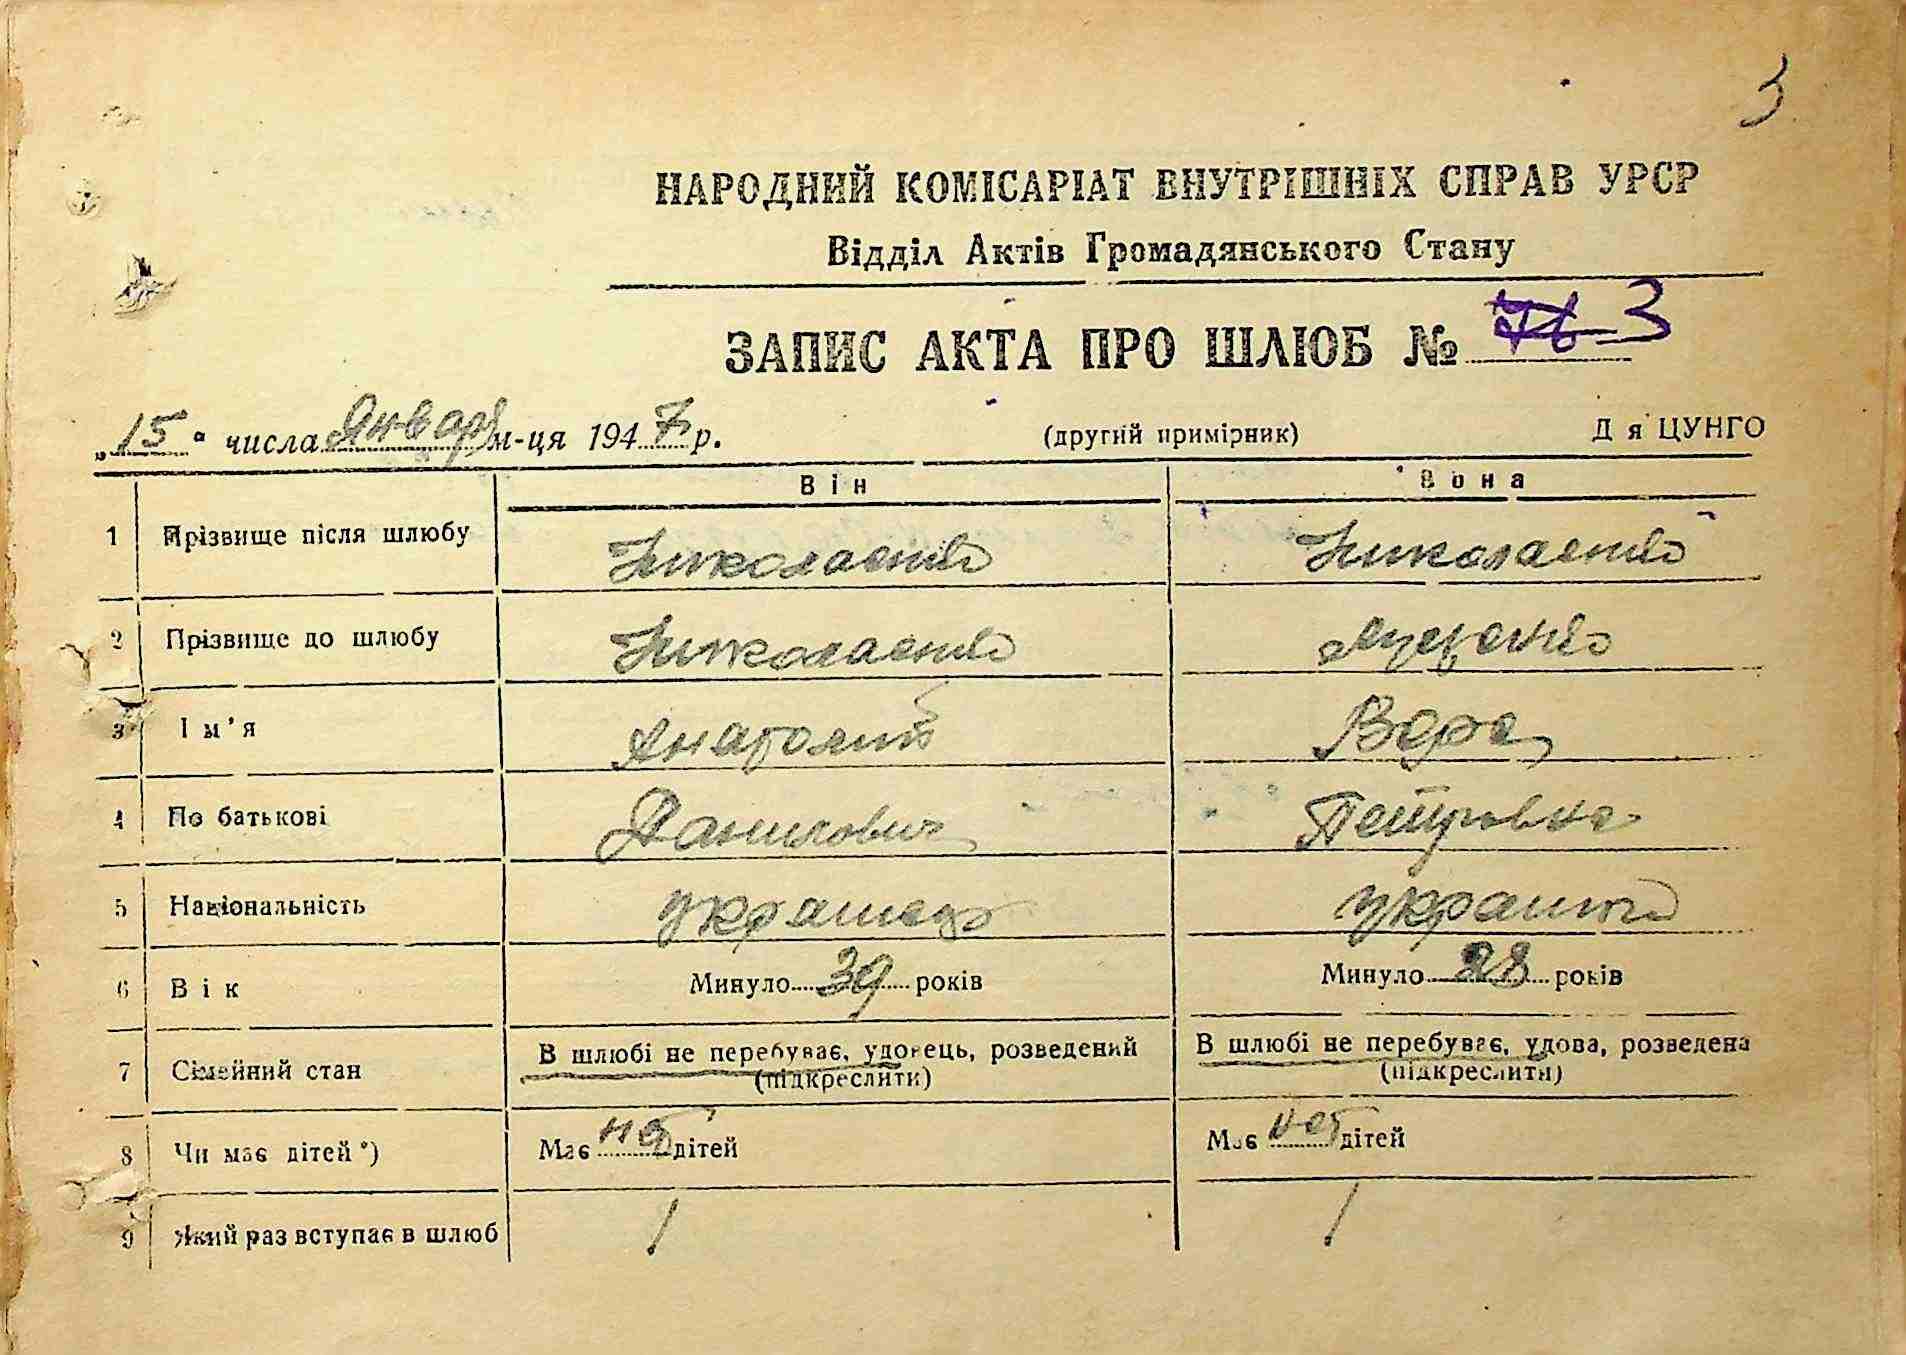 3
НАРОДНИЙ КОМІСАРІАТ ВНУТРІШНІХ СПРАВ УРСР
Відділ Актів Громадянського Стану
ЗАПИС АКТА ПРО ШЛЮБ № 3
„15" числа Январ м-ця 1947 р. (другий примірник) Д я ЦУНГО
Він Вона
1 Прізвище після шлюбу Николаенко Николаенко
2 Прізвище до шлюбу Николаенко
3 Ім'я Анатолий Вера
4 По батькові Данилович Петровна
5 Національність украинец
6 Вік Минуло 39 років Минуло 28 років
7 Сімейний стан В шлюбі не перебуває, удовець, розведений В шлюбі не перебуває, удова, розведена
(підкреслити) (підкреслити)
8 Чи має дітей*) Має нет дітей Має нет дітей
9 Який раз вступає в шлюб 1 1